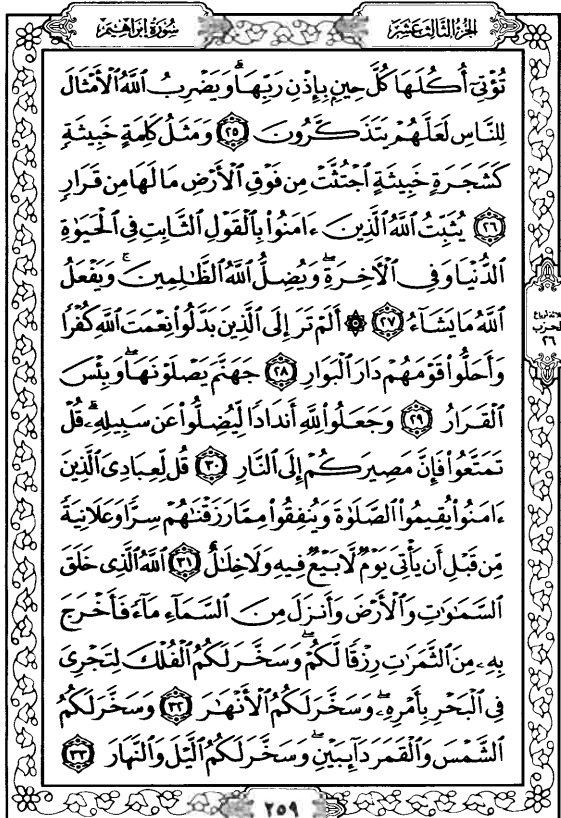 سُورَةُ إِبْرَاهِيمَ
الجُزْءُ الثَّالِثَ عَشَرَ
تُؤْتِىٓ أُكُلَهَا كُلَّ حِينٍۭ بِإِذْنِ رَبِّهَاۗ وَيَضْرِبُ ٱللَّهُ ٱلْأَمْثَالَ
لِلنَّاسِ لَعَلَّهُمْ يَتَذَكَّرُونَ ٢٥ وَمَثَلُ كَلِمَةٍ خَبِيثَةٍ
كَشَجَرَةٍ خَبِيثَةٍ ٱجْتُثَّتْ مِن فَوْقِ ٱلْأَرْضِ مَا لَهَا مِن قَرَارٍ
٢٦ يُثَبِّتُ ٱللَّهُ ٱلَّذِينَ ءَامَنُوا۟ بِٱلْقَوْلِ ٱلثَّابِتِ فِى ٱلْحَيَوٰةِ
ٱلدُّنْيَا وَفِى ٱلْـَٔاخِرَةِۖ وَيُضِلُّ ٱللَّهُ ٱلظَّٰلِمِينَۚ وَيَفْعَلُ
ٱللَّهُ مَا يَشَآءُ ٢٧ ۞ أَلَمْ تَرَ إِلَى ٱلَّذِينَ بَدَّلُوا۟ نِعْمَتَ ٱللَّهِ كُفْرًا
وَأَحَلُّوا۟ قَوْمَهُمْ دَارَ ٱلْبَوَارِ ٢٨ جَهَنَّمَ يَصْلَوْنَهَاۖ وَبِئْسَ
ٱلْقَرَارُ ٢٩ وَجَعَلُوا۟ لِلَّهِ أَندَادًا لِّيُضِلُّوا۟ عَن سَبِيلِهِۦۗ قُلْ
تَمَتَّعُوا۟ فَإِنَّ مَصِيرَكُمْ إِلَى ٱلنَّارِ ٣٠ قُل لِّعِبَادِىَ ٱلَّذِينَ
ءَامَنُوا۟ يُقِيمُوا۟ ٱلصَّلَوٰةَ وَيُنفِقُوا۟ مِمَّا رَزَقْنَٰهُمْ سِرًّا وَعَلَانِيَةً
مِّن قَبْلِ أَن يَأْتِىَ يَوْمٌ لَّا بَيْعٌ فِيهِ وَلَا خِلَٰلٌ ٣١ ٱللَّهُ ٱلَّذِى خَلَقَ
ٱلسَّمَٰوَٰتِ وَٱلْأَرْضَ وَأَنزَلَ مِنَ ٱلسَّمَآءِ مَآءً فَأَخْرَجَ
بِهِۦ مِنَ ٱلثَّمَرَٰتِ رِزْقًا لَّكُمْۖ وَسَخَّرَ لَكُمُ ٱلْفُلْكَ لِتَجْرِىَ
فِى ٱلْبَحْرِ بِأَمْرِهِۦۖ وَسَخَّرَ لَكُمُ ٱلْأَنْهَٰرَ ٣٢ وَسَخَّرَ لَكُمُ
ٱلشَّمْسَ وَٱلْقَمَرَ دَآئِبَيْنِۖ وَسَخَّرَ لَكُمُ ٱلَّيْلَ وَٱلنَّهَارَ ٣٣
ثلاثة أرباع
الحزب
٢٦
٢٥٩